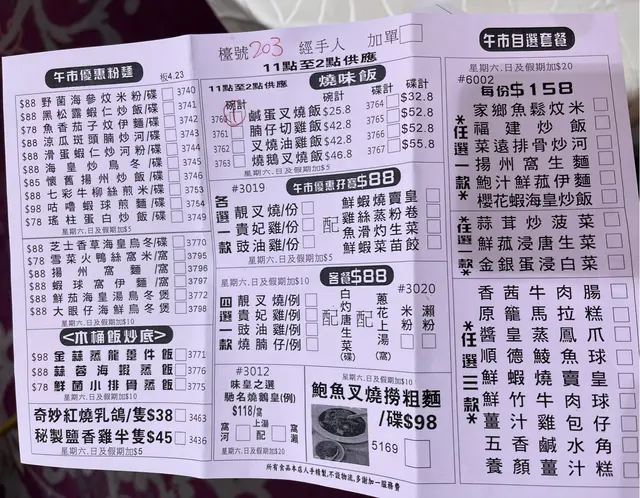 檯號 203 經手人 加單
午市優惠粉麵 板4.23
$88 野菌海參炆米粉/碟 3740
$88 黑松露蝦仁炒飯/碟 3741
$78 魚香茄子炆伊麵/碟 3742
$88 涼瓜斑頭腩炒河/碟 3743
$88 滑蛋蝦仁炒河粉/碟 3744
$88 海皇炒烏冬/碟 3745
$85 懷舊揚州炒飯/碟 3746
$88 七彩牛柳絲煎米/碟 3747
$98 咕嚕蝦球煎麵/碟
$78 瑤柱蛋白炒飯/碟 3749
星期六.日及假期加$5
$88 芝士香草海皇烏冬/碟 3770
$78 雪菜火鴨絲窩米/窩 3795
$88 揚州窩麵/窩 3796
$88 蝦球窩伊麵/窩 3797
$88 鮮茄海皇湯烏冬/煲
$88 大眼仔海鮮烏冬/煲 3798
星期六.日及假期加$10
<木桶飯炒底>
$98 金蒜蒸龍躉件飯 3771
$88 蒜蓉海蝦蒸飯 3776
$78 鮮菌小排骨蒸飯 3775
奇妙紅燒乳鴿/隻$38 3463
秘製鹽香雞半隻$45 3436
星期六.日及假期加$5
11點至2點供應
11點至2點供應 燒味飯
碗計 碗計 碟計 碟計
3760 鹹蛋叉燒飯$25.8 3764 $32.8
腩仔切雞飯$42.8 3765 $52.8
3762 叉燒油雞飯$42.8 3766 $52.8
3763 燒鵝叉燒飯$46.8 3767 $55.8
星期六.日及假期加$5
#3019 午市優惠孖寶$88
各選一款
靚叉燒/份
貴妃雞/份
豉油雞/份
配
鮮蝦燒賣皇
雞絲蒸粉卷
魚滑灼生菜
鮮蝦菜苗餃
星期六.日及假期加$10
客餐$88
#3020
四選一
靚叉燒/例
貴妃雞/例
豉油雞/例
燒腩仔/例
配
白灼唐生菜(碟)
配
蔥花上湯(窩)
米粉
瀨粉
星期六.日及假期加$10
#3012
味皇之選
馳名燒鵝皇(例)
$118/窩
窩河 上湯配 窩瀨
星期六.日及假期加$20
鮑魚叉燒撈粗麵
/碟$98
5169
所有食品本店人手精製,不設物流,多謝加一服務費
午市自選套餐
星期六.日及假期加$20
#6002
每份$158
*任選一款*
家鄉魚鬆炆米
福建炒飯
菜遠排骨炒河
揚州窩生麵
鮑汁鮮菰伊麵
櫻花蝦海皇炒飯
*任選一款*
蒜茸炒菠菜
鮮菰浸唐生菜
金銀蛋浸白菜
*任選三款*
香茜牛肉腸
原籠馬拉糕
醬皇蒸鳳爪
順德鯪魚球
鮮蝦燒賣皇
鮮竹牛肉球
薑汁雞包仔
五香鹹水角
養顏薑汁糕